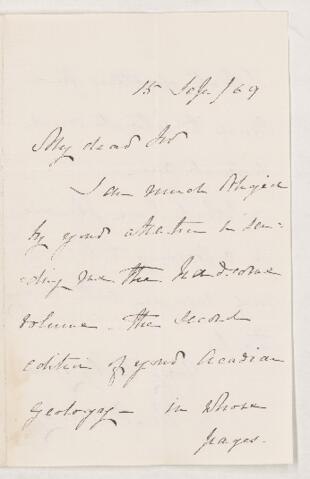 15 Sep/69
My dear Sir
I am much obliged
by your attention in sen-
ding me the handsome
volume - the second
edition of your Acadian
Geology - in whose
pages.